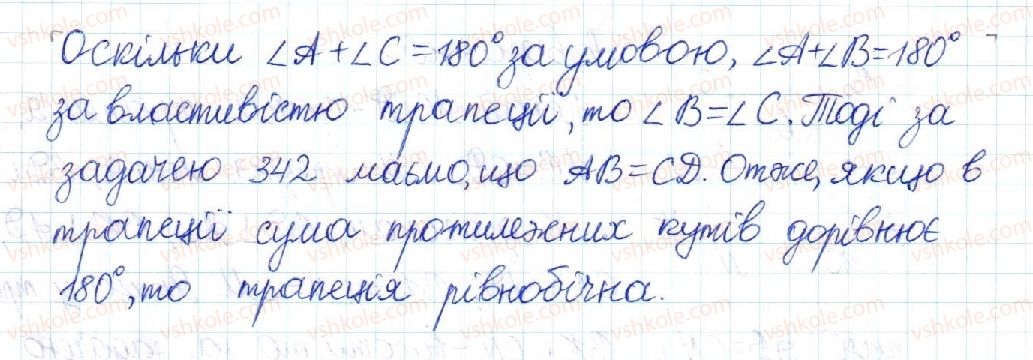 Оскільки ∠A+∠C=180° за умовою, ∠A+∠B=180°
за властивістю трапеції, то ∠B=∠C. Тоді за
задачею 342 маємо, що AB=CD. Отже, якщо в
трапеції сума протилежних кутів дорівнює
180°, то трапеція рівнобічна.